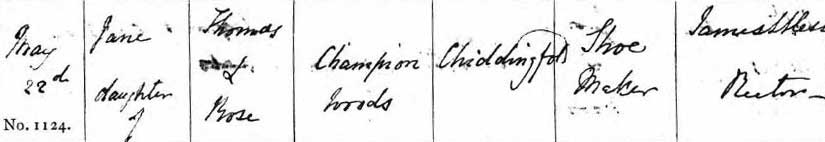 May
22d
No. 1124.
Jane
daughter
of
Thomas
&
Rose
Champion
Woods
Chiddingfold
Shoe
Maker
James
Rector